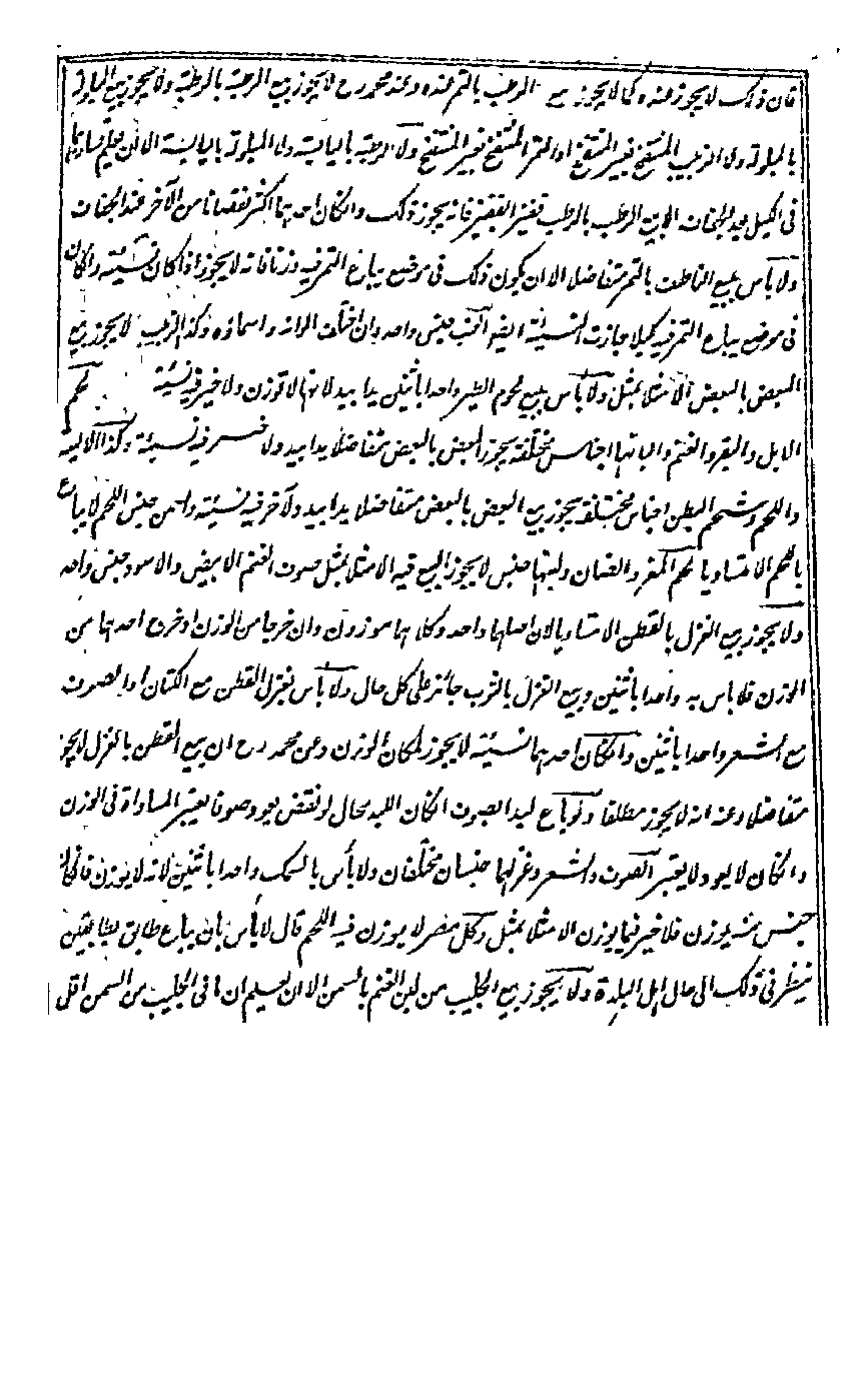 فان ذلك لا يجوز عنده كما لا يجوز بيع الرطب بالتمر عنده وعند محمد رح لا يجوز بيع الرطبة بالرطبة ولا يجوز بيع المبلولة
بالمبلولة ولا الزبيب المنتقع بغير المنتقع او التمر المنتقع بغير المنتقع ولا الرطبة باليابسة ولا المبلولة باليابسة الا ان يعلم تساويهما
فى الكيل بعد الجفاف الا بيع الرطب بالرطب قفيز القفيز فانه يجوز ذلك وان كان احدهما اكثر نقصانا من الآخر عند الجفاف
ولا بأس ببيع الناطف بالتمر متفاضلا الا ان يكون ذلك فى موضع يباع التمر فيه وزنا فانه لا يجوز اذا كان نسيئة وان كان
فى موضع يباع التمر فيه كيلا جازت النسيئة ايضا العنب جنس واحد وان اختلفت الوانه واسماؤه وكذا الزبيب لا يجوز بيع
البعض بالبعض الا مثلا بمثل ولا بأس ببيع لحوم الطير واحدا باثنين يدا بيد لانها لا توزن ولا خير فيه نسيئة لحم
الابل والبقر والغنم والبانها اجناس مختلفة يجوز البعض بالبعض متفاضلا يدا بيد ولا خير فيه نسيئة وكذا الالية
واللحم وشحم البطن اجناس مختلفة يجوز بيع البعض بالبعض متفاضلا يدا بيد ولا خير فيه نسيئة جنس اللحم لا يباع
باللحم الا متساويا لحم المعز والضان ولبنها جنس لا يجوز البيع فيه الا مثلا بمثل صوف الغنم الابيض والاسود جنس واحد
ولا يجوز بيع الغزل بالقطن الا متساويا لان اصلهما واحد وكلاهما موزون وان خرجا من الوزن او خرج احدهما من
الوزن فلا بأس به واحدا باثنين وبيع الغزل بالثوب جائز على كل حال ولا بأس بغزل القطن مع الكتان او الصوف
مع الشعر واحدا باثنين وان كان احدهما نسيئة لا يجوز لمكان الوزن وعن محمد رح ان بيع القطن بالغزل لا يجوز
متفاضلا وعنه انه لا يجوز مطلقا ولو باع لبد الصوف ان كان اللبد بحال لو نقض يعود صوفا يعتبر المساواة فى الوزن
وان كان لا يعود لا يعتبر الصوف والشعر وغزلهما جنسان مختلفان ولا بأس بالسمك واحدا باثنين لانه لا يوزن فان كان
جنس منه يوزن فلا خير فيما يوزن الا مثلا بمثل وكل مصر لا يوزن فيه اللحم قال لا بأس بان يباع طابق بطابقين
ينظر فى ذلك الى حال اهل البلدة ولا يجوز بيع الحليب من لبن الغنم بالسمن الا ان يعلم ان ما فى الحليب من السمن اقل